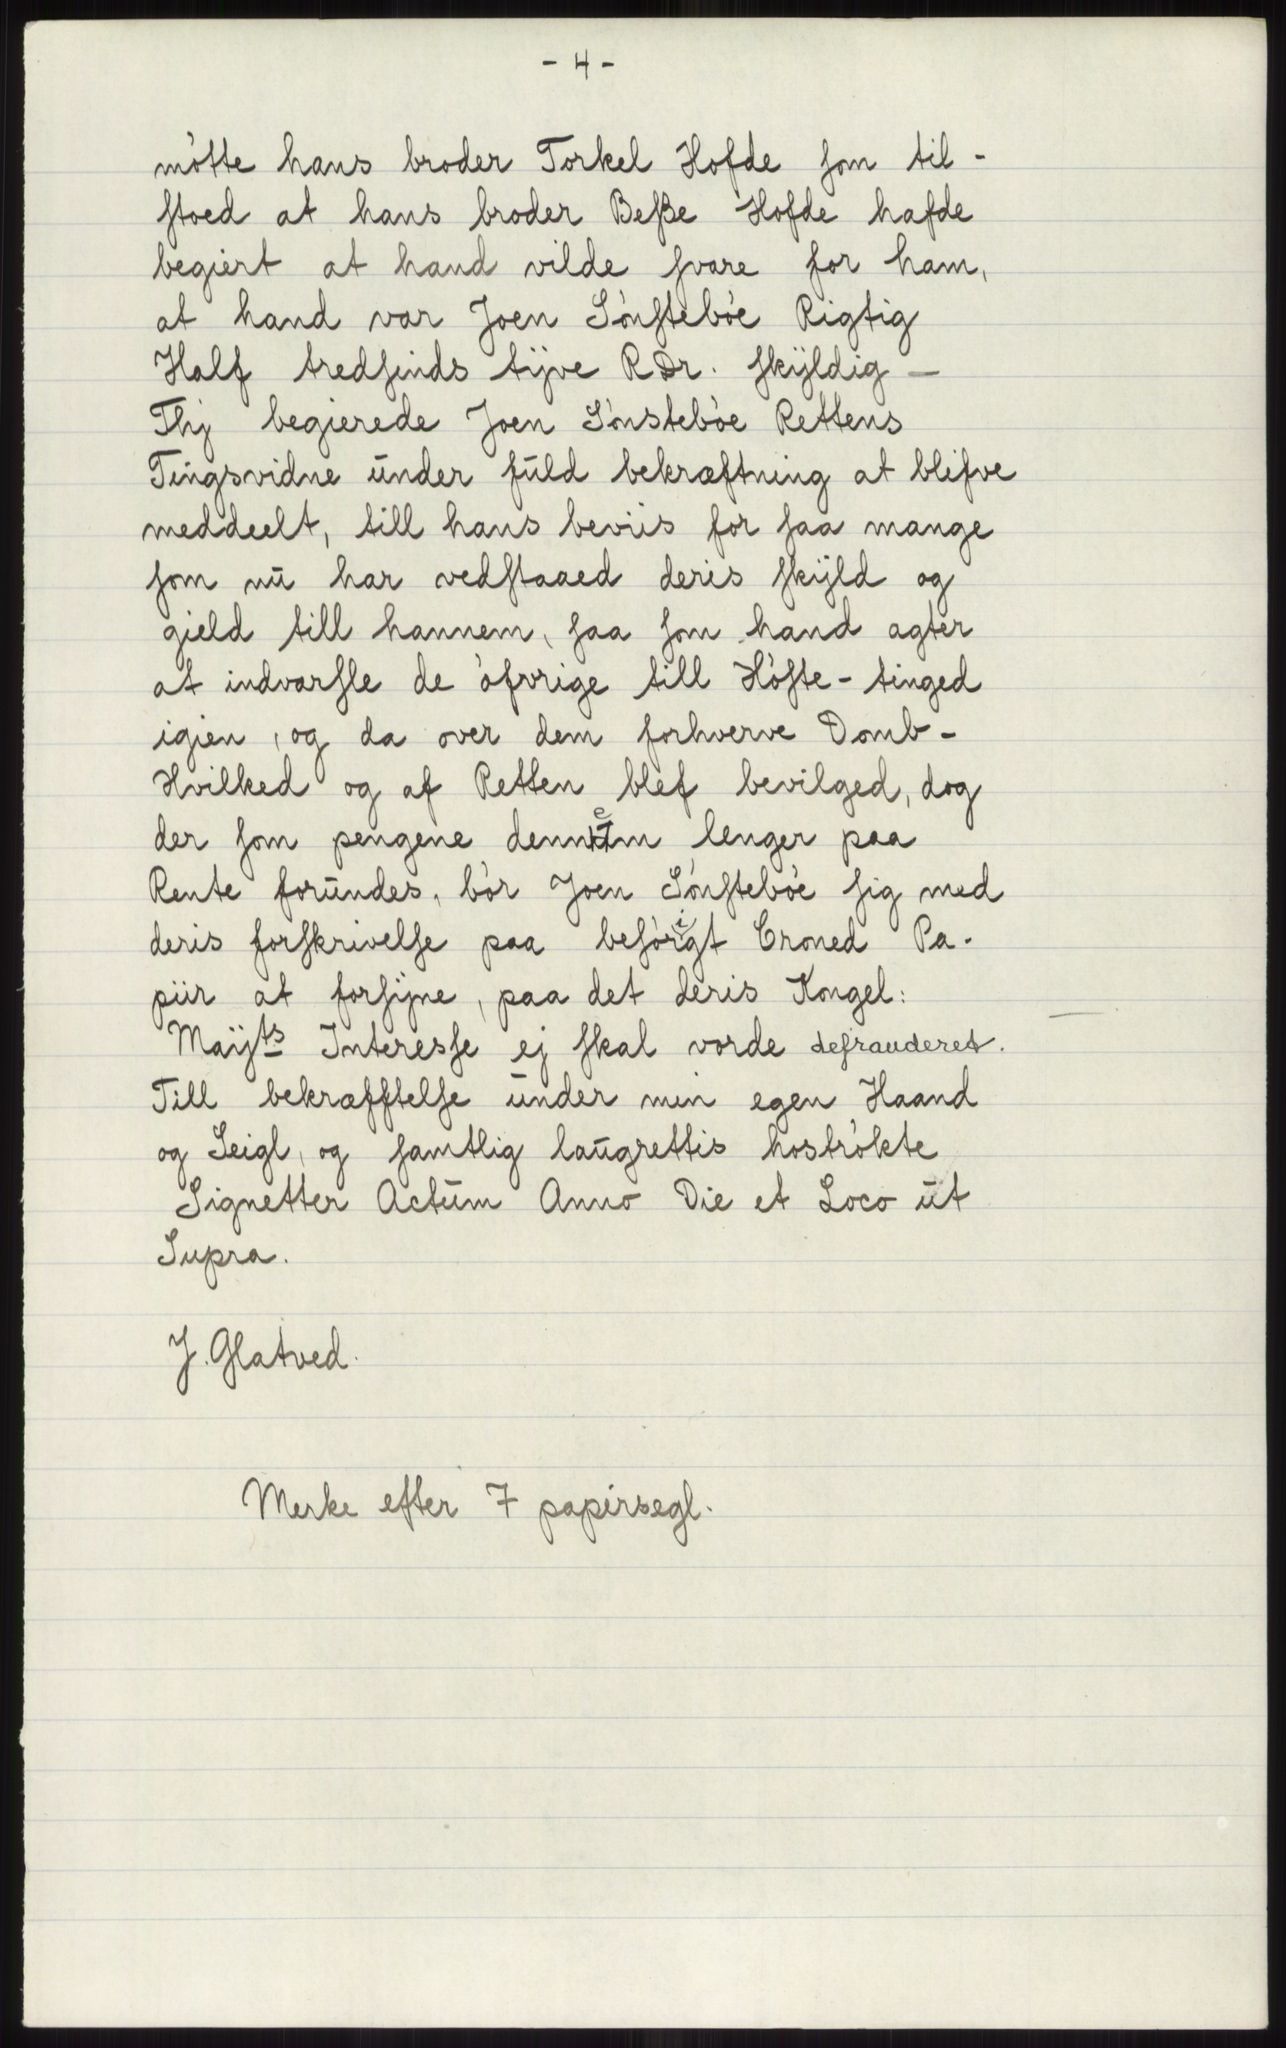 - 4 -
mòtte hans broder Torkel Hofde som til -
stoed at hans broder Beße Hofde hafde
begiert at hand vilde svare for ham,
at hand var Joen Sònstebòe Rigtig
Half tredsinds tijve RDr. skÿldig —
Thj begierede Joen Sònstebòe Rettens
Tingsvidne ūnder fūld bekræftning at blifve
meddeelt, till hans beviis for saa mange
som nū har vedstaaed deris skÿld og
gield till hannem, saa som hand agter
at indvarsle de òfvrige till Hòste - tinged
igien, og da over dem forhverve Domb -
Hvilked og af Retten blef bevilged, dog
der som pengene dennem lenger paa
Rente forūndes, bòr Joen Sònstebòe sig med
deris forskrivelse paa behòrigt Croned Pa-
piir at forsÿne, paa det deris Kongel:
Maÿts Interesse ej skal vorde defrauderet.
Till bekræfftelse ūnder min egen Haand
og Seigl, og samtlig laūgrettis hostròkte
Signetter Actūm Anno Die et Loco ūt
Supra.
J. Glatved.
Merke efter 7 papirsegl.